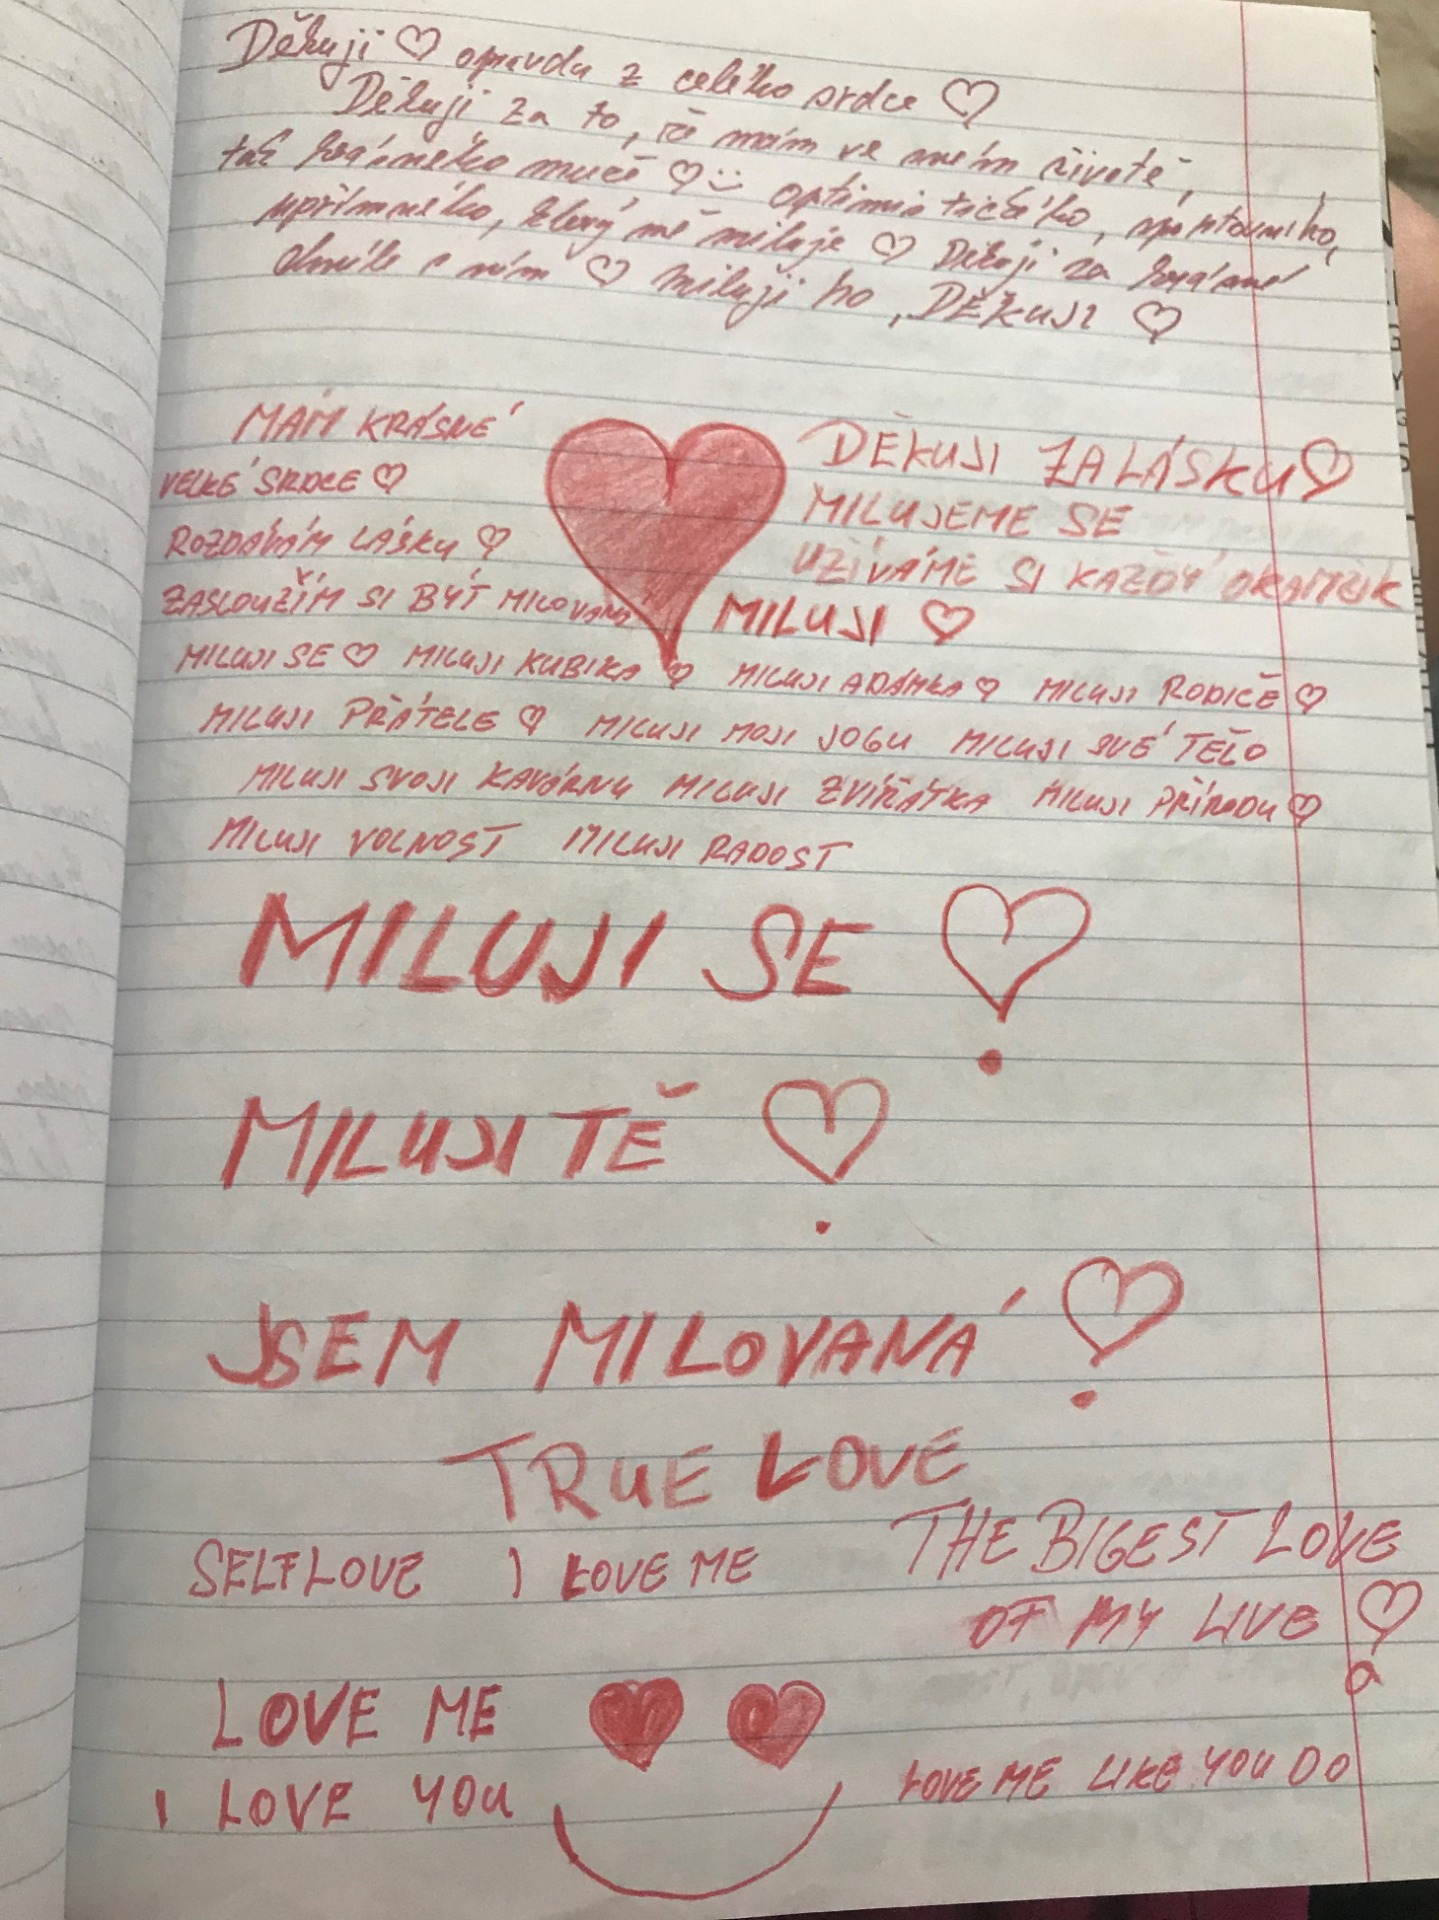 Děkuji ♡ opravdu z celého srdce ♡
Děkuji za to, že mám ve svém životě,
tak krásného muže ♡ optimistického, spontánního,
upřímného, který mě miluje ♡ Děkuji za krásné
chvíle s ním ♡ miluji ho, DĚKUJI ♡
MÁM KRÁSNÉ
VELKÉ SRDCE ♡
ROZDÁVÁM LÁSKU ♡
ZASLOUŽÍM SI BÝT MILOVANÁ
DĚKUJI ZA LÁSKU ♡
MILUJEME SE
UŽÍVÁME SI KAŽDÝ OKAMŽIK
MILUJI ♡
MILUJI SE ♡ MILUJI KUBIKA ♡ MILUJI ADÁMKA ♡ MILUJI RODIČE ♡
MILUJI PŘÁTELE ♡ MILUJI MOJI JOGU MILUJI SVÉ TĚLO
MILUJI SVOJI KAVÁRNU MILUJI ZVÍŘÁTKA MILUJI PŘÍRODU ♡
MILUJI VOLNOST MILUJI RADOST
MILUJI SE ♡
MILUJI TĚ ♡
JSEM MILOVANÁ ♡
TRUE LOVE
SELFLOVE I LOVE ME
THE BIGEST LOVE
OF MY LIVE ♡
LOVE ME
I LOVE YOU
LOVE ME LIKE YOU DO